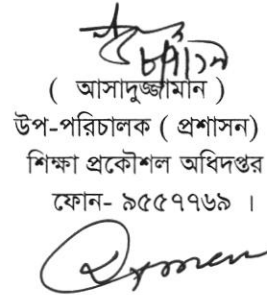 ( আসাদুজ্জামান )
উপ-পরিচালক ( প্রশাসন)
শিক্ষা প্রকৌশল অধিদপ্তর
ফোন- ৯৫৫৭৭৬৯ ।